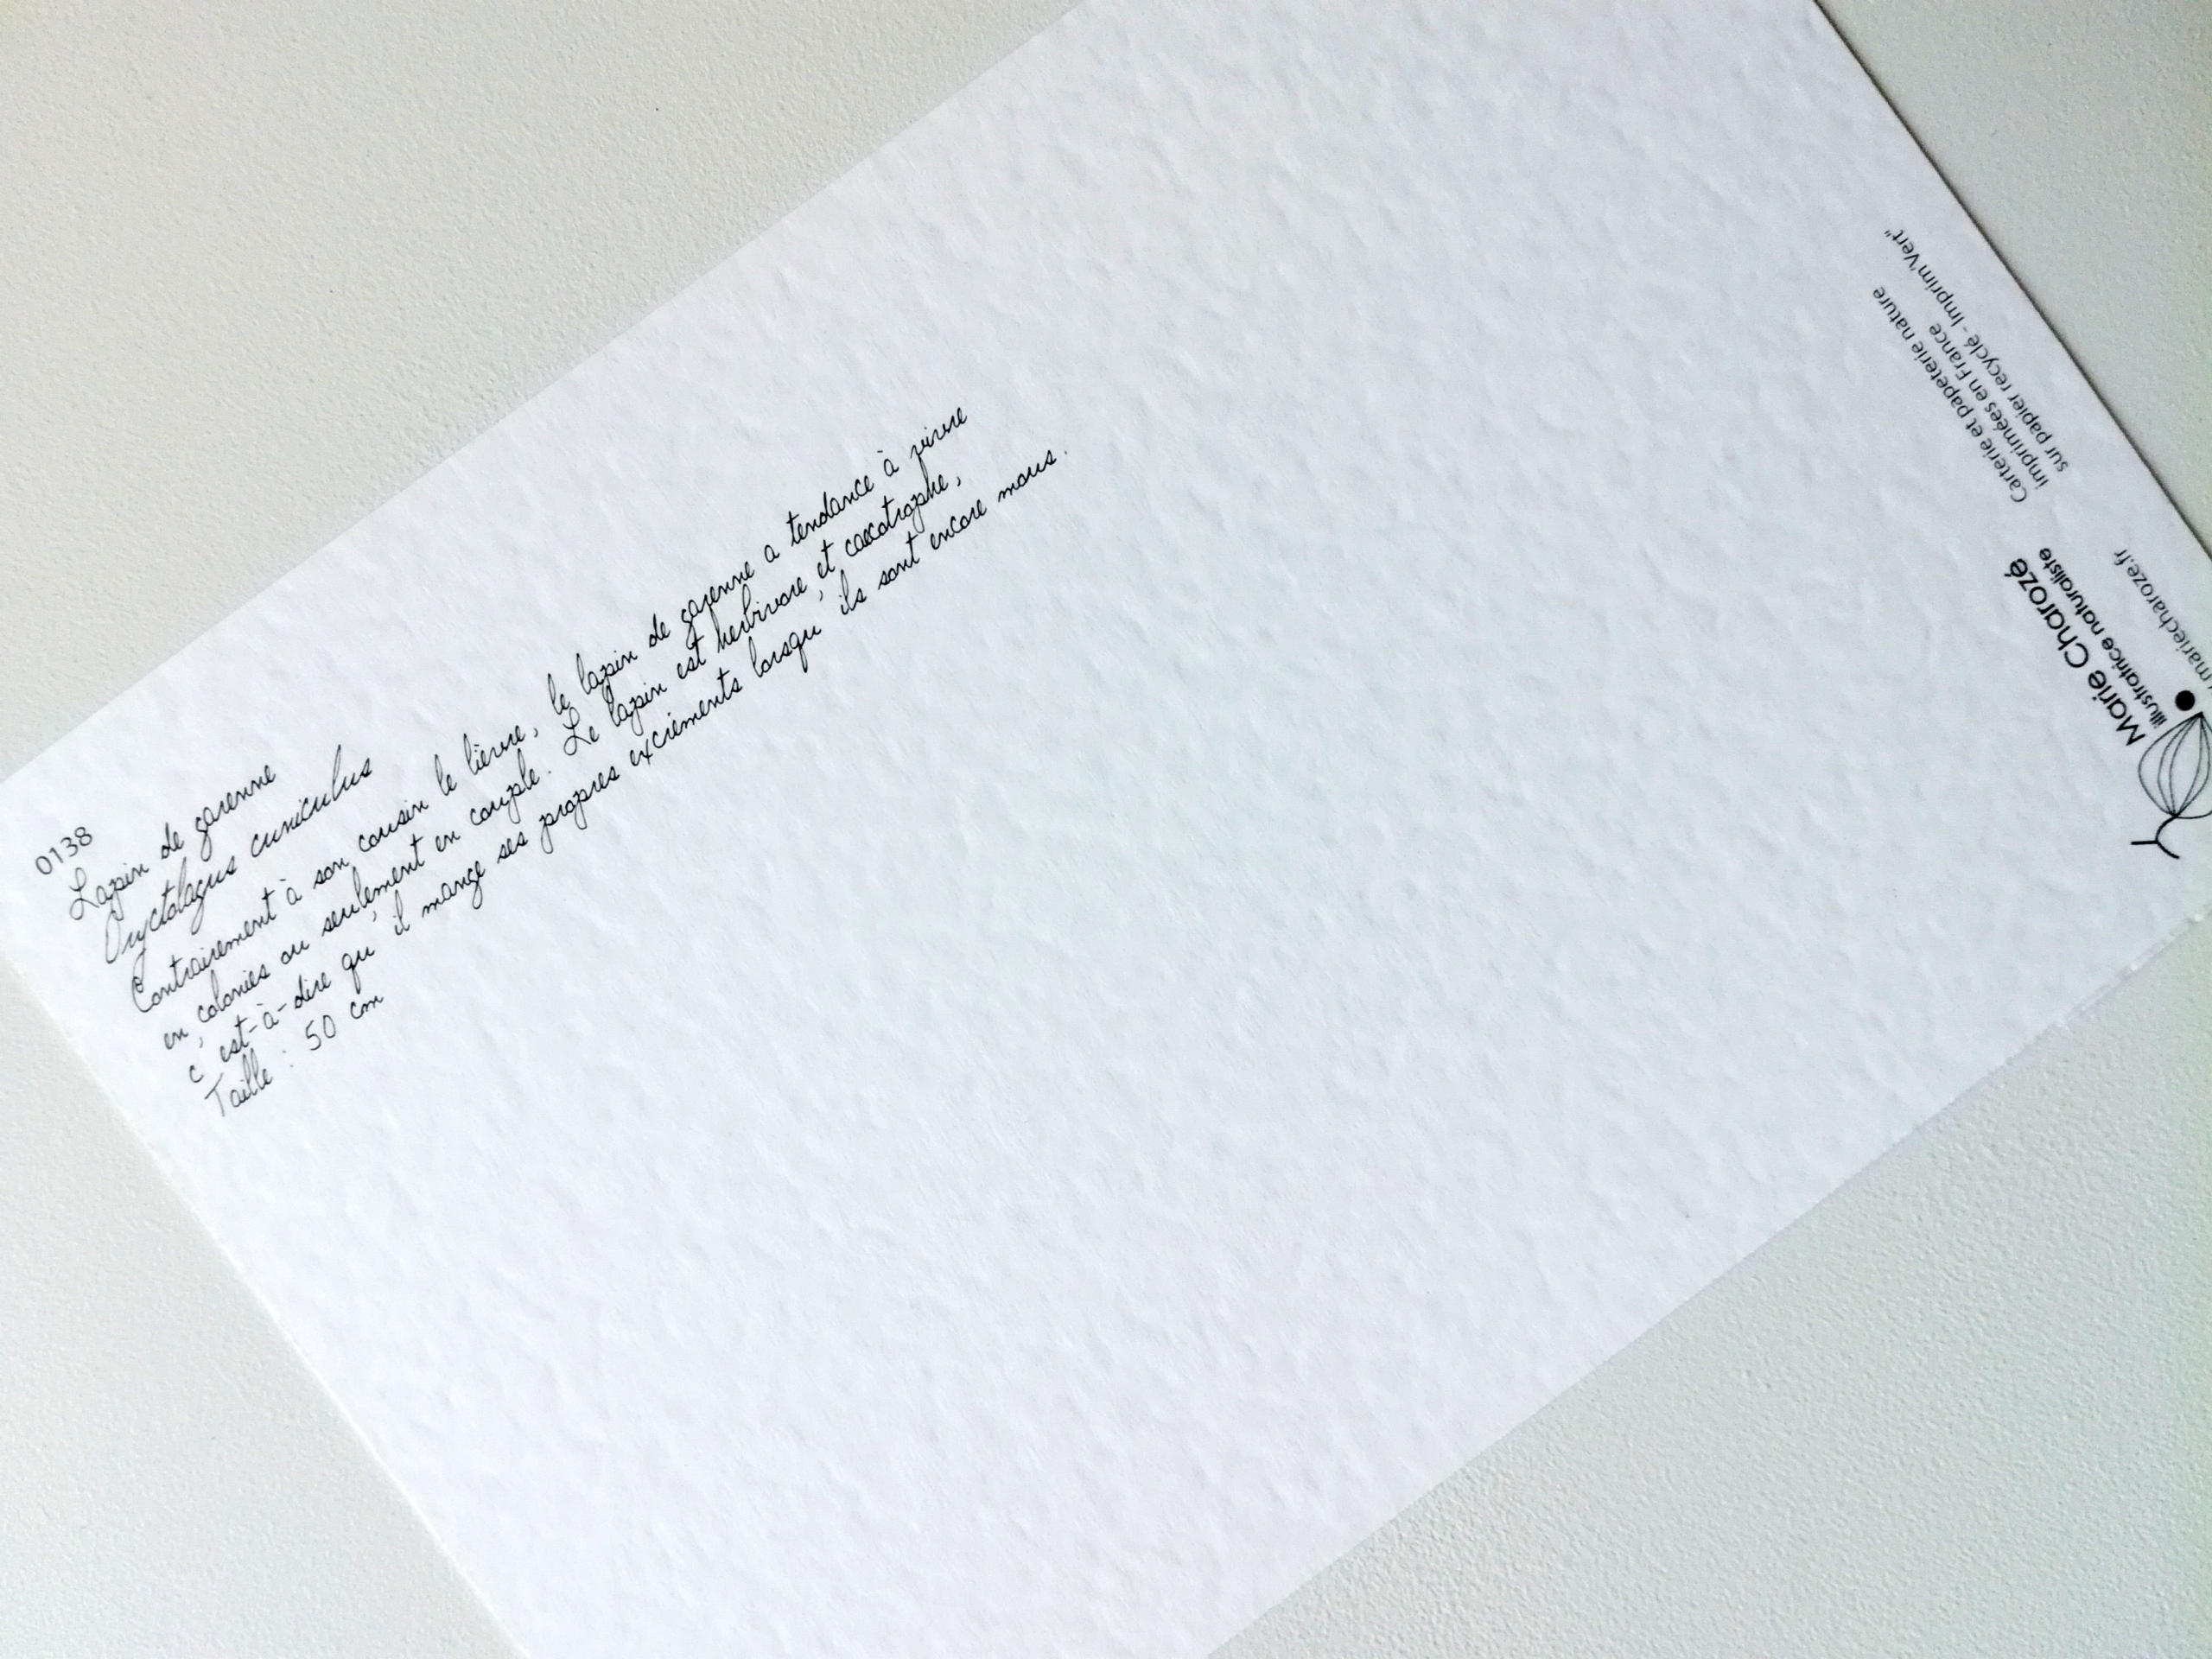 0138
Lapin de garenne
Oryctolagus cuniculus
Contrairement à son cousin le lièvre, le lapin de garenne a tendance à vivre
en colonies ou seulement en couple. Le lapin est herbivore, et caecotrophe,
c'est-à-dire qu'il mange ses propres excréments lorsqu'ils sont encore mous.
Taille : 50 cm
Marie Charozé
illustratrice naturaliste
mariecharoze.fr
Carterie et papeterie nature
imprimées en France
sur papier recyclé - Imprim'Vert"